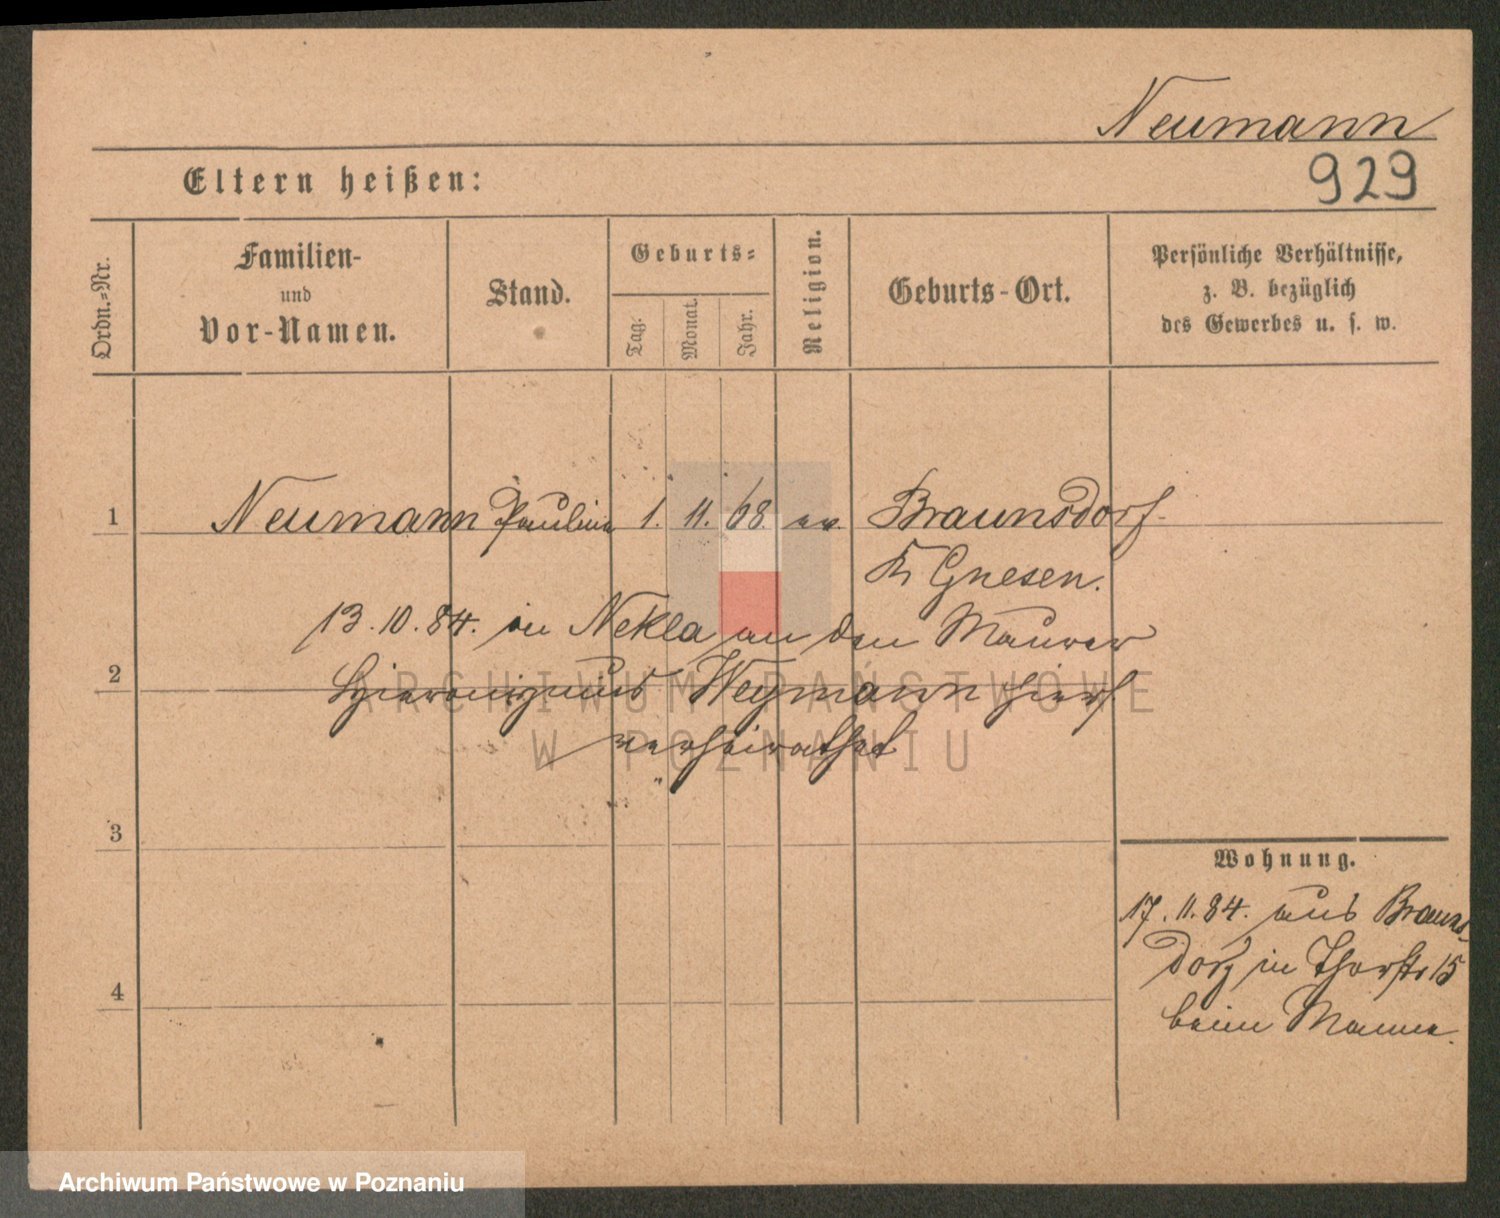 Neumann
929
Eltern heißen:
Ordn.-Nr.
Familien-
und
Vor-Namen.
Stand.
Geburts-
Tag.
Monat.
Jahr.
Religion.
Geburts-Ort.
Persönliche Verhältnisse,
z. B. bezüglich
des Gewerbes u. s. w.
1 Neumann Pauline 1. 11. 68. ev. Braunsdorf
Kr Gnesen.
13.10.84. in Nekla an den Maurer
2 Hieronymus Weymann hiers.
verheirathet
3
Wohnung.
17.11.84. aus Brauns-
dorf in Thorstr 15
4
beim Manne.
ARCHIWUM PAŃSTWOWE
W POZNANIU
Archiwum Państwowe w Poznaniu